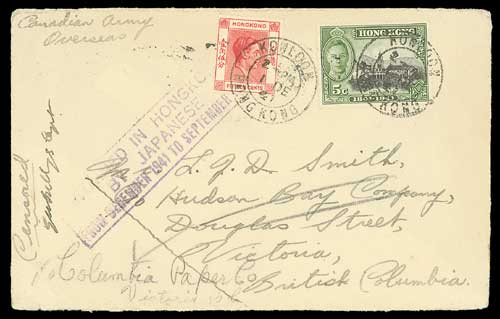 Canadian Army
Overseas
HONGKONG
FIFTEEN CENTS
KOWLOON
HONG KONG
HONG KONG
5c
KOWLOON
KONG
D IN HONGKO
JAPANESE
FROM DECEMBER 1941 TO SEPTEMBER
Censored
L. G. D. Smith,
Hudson Bay Company,
Douglas Street,
Victoria,
British Columbia.
Columbia Paper Co
Victoria B.C.